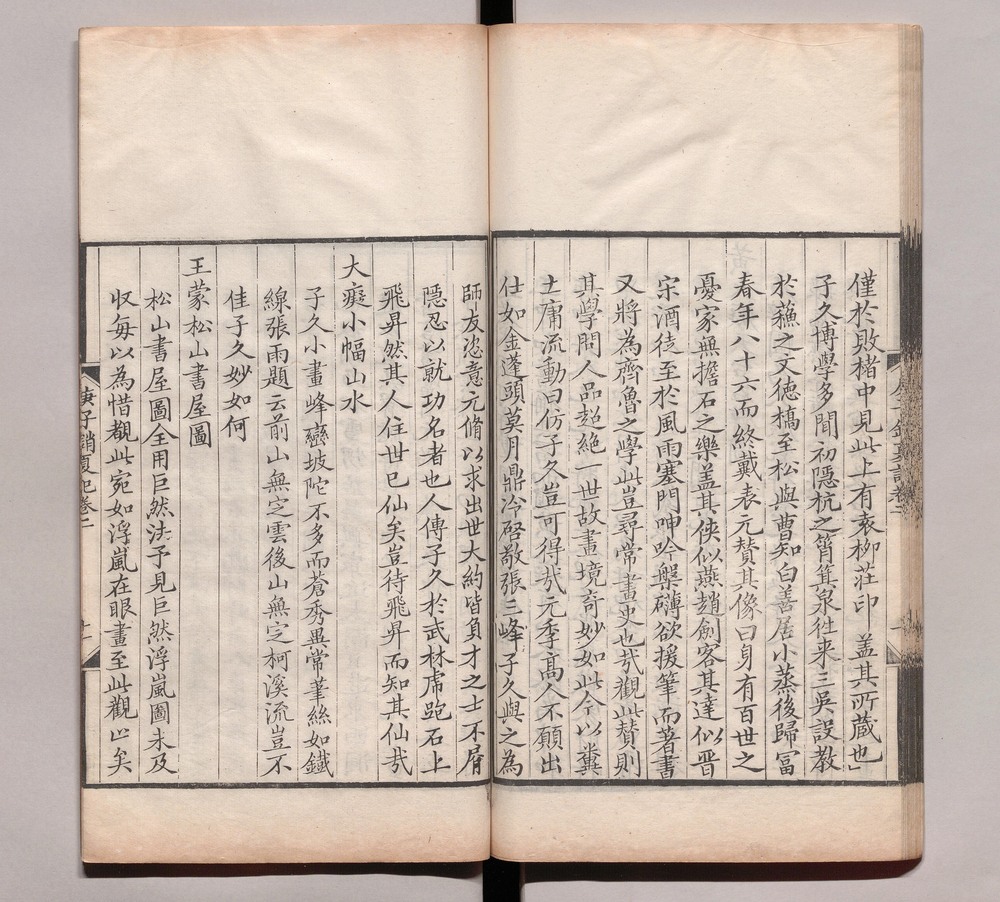 僅於敗楮中見此上有衰柳莊印　蓋其所蔵也
子久博學多聞初隱杭之筲箕泉徃来三吳設教
於蘓之文德橋至松與曹知白善居小蒸後歸富
春年八十六而終戴表元賛其像曰身有百世之
憂家無擔石之樂盖其俠似燕趙劍客其達似晋
宋酒徒至於風雨塞門呻吟槃礴欲援筆而著書
又將為齊魯之學此豈尋常畫史也㢤觀此賛則
其學問人品超絶一世故畫境竒妙如此今以糞
土庸流動曰仿子久豈可得㢤元季髙人不願出
仕如金蓬頭莫月鼎冷啓敬張三峰子久與之為
師友恣意元脩以求出世大約皆負才之士不屑
隱忍以就功名者也人傳子久於武林虎跑石上
飛昇然其人住世已仙矣豈待飛昇而知其仙㢤
大癡小幅山水
子久小畫峰巒坡陀不多而蒼秀異常筆絲如鐵
線張雨題云前山無定雲後山無定柯溪流豈不
佳子久妙如何
王蒙松山書屋圖
松山書屋圖全用巨然法予見巨然浮嵐圖未及
収每以為惜覩此宛如浮嵐在眼畫至此觀止矣
庚子銷夏記卷二
十一